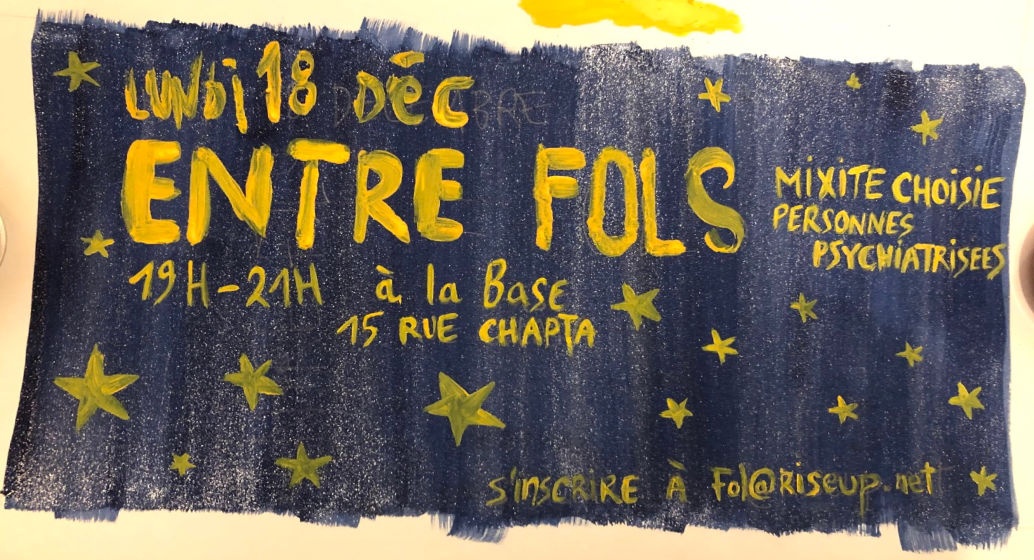 LUNDI 18 DÉC
ENTRE FOLS
MIXITE CHOISIE
PERSONNES
PSYCHIATRISEES
19H-21H à la Base
15 RUE CHAPTA
s'inscrire À Fol@riseup.net